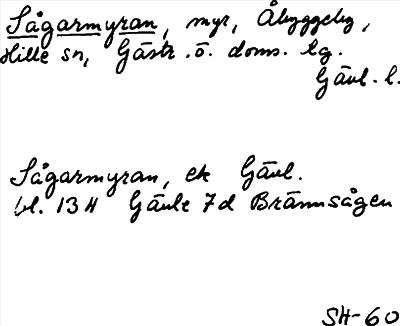 Sågarmyran, myr, Åbyggeby,
Hille sn, Gästr. ö. doms. lg.
Gävl. l.
Sågarmyran, ek Gävl.
bl. 13 H Gävle 7d Brännsågen
SH-60